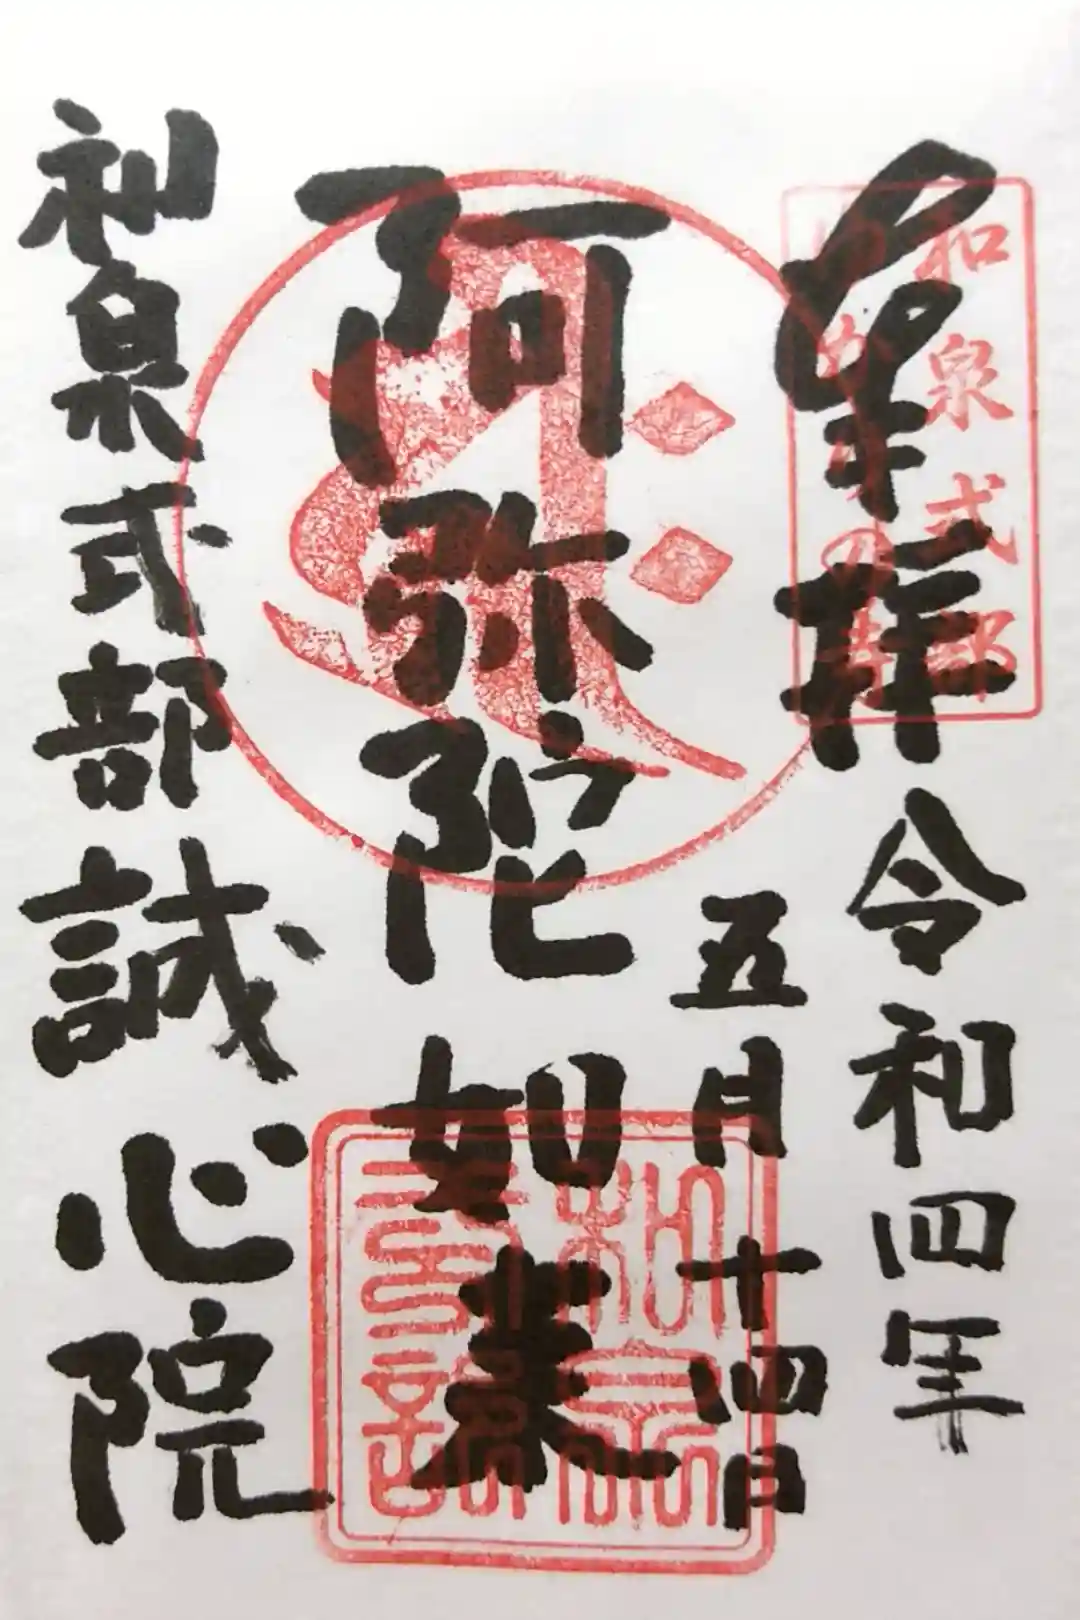 奉拝
令和四年
五月十四日
阿弥陀如来
和泉式部誠心院
和泉式部
ゆかりの寺